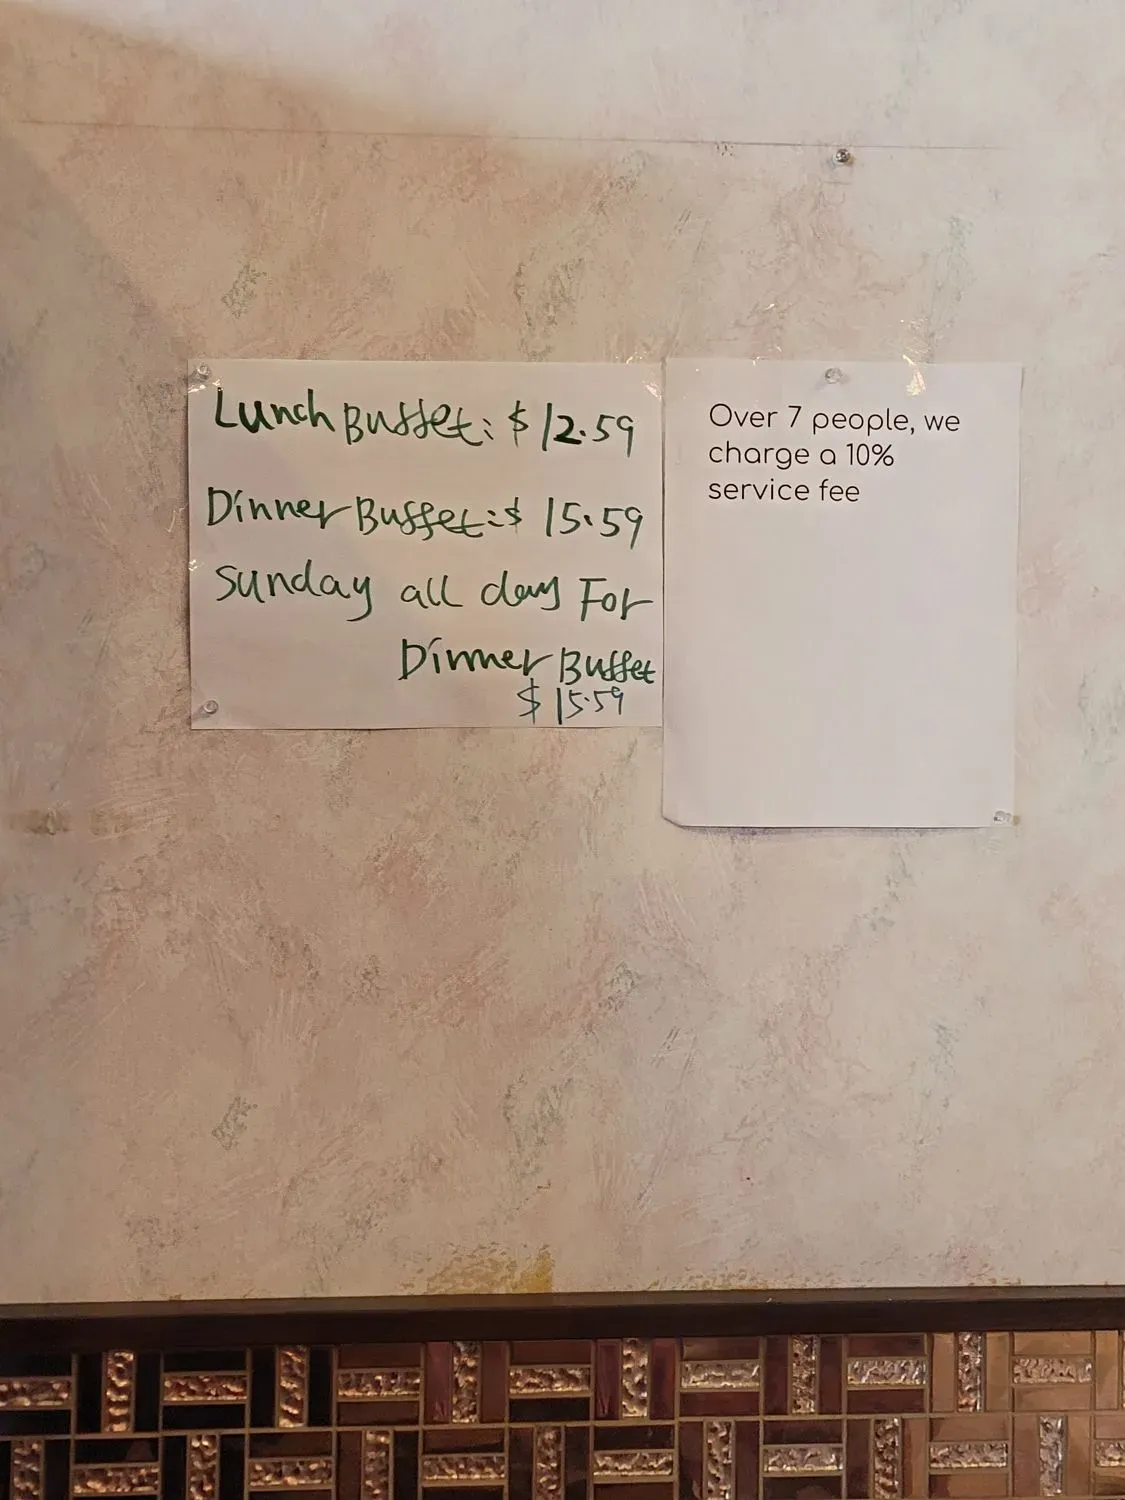 Lunch Buffet: $12.59
Dinner Buffet: $ 15.59
Sunday all day For
Dinner Buffet
$15.59
Over 7 people, we
charge a 10%
service fee